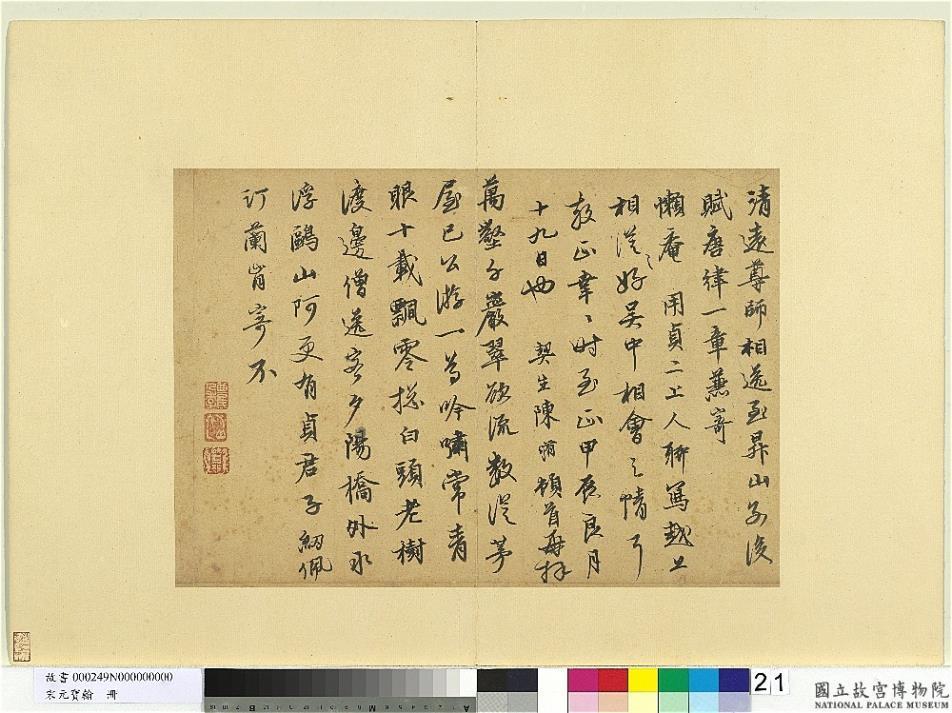 清遠尊師相送至昇山別後
賦唐律一章兼寄
懶庵 用貞二上人聊寫越上
相從之好吳中相會之情一丁
教正幸〻時至正甲辰良月
十九日也 契生陳 頓首再拜
萬壑千巖翠欲流數從茅
屋已公游一尊吟嘯常青
眼十載飄零搃白頭老樹
渡邊僧送客夕陽橋外水
浮鷗山阿更有貞君子紉佩
汀蘭肯寄不
故書 000249N000000000
宋元寶翰 冊
21
國立故宮博物院
NATIONAL PALACE MUSEUM